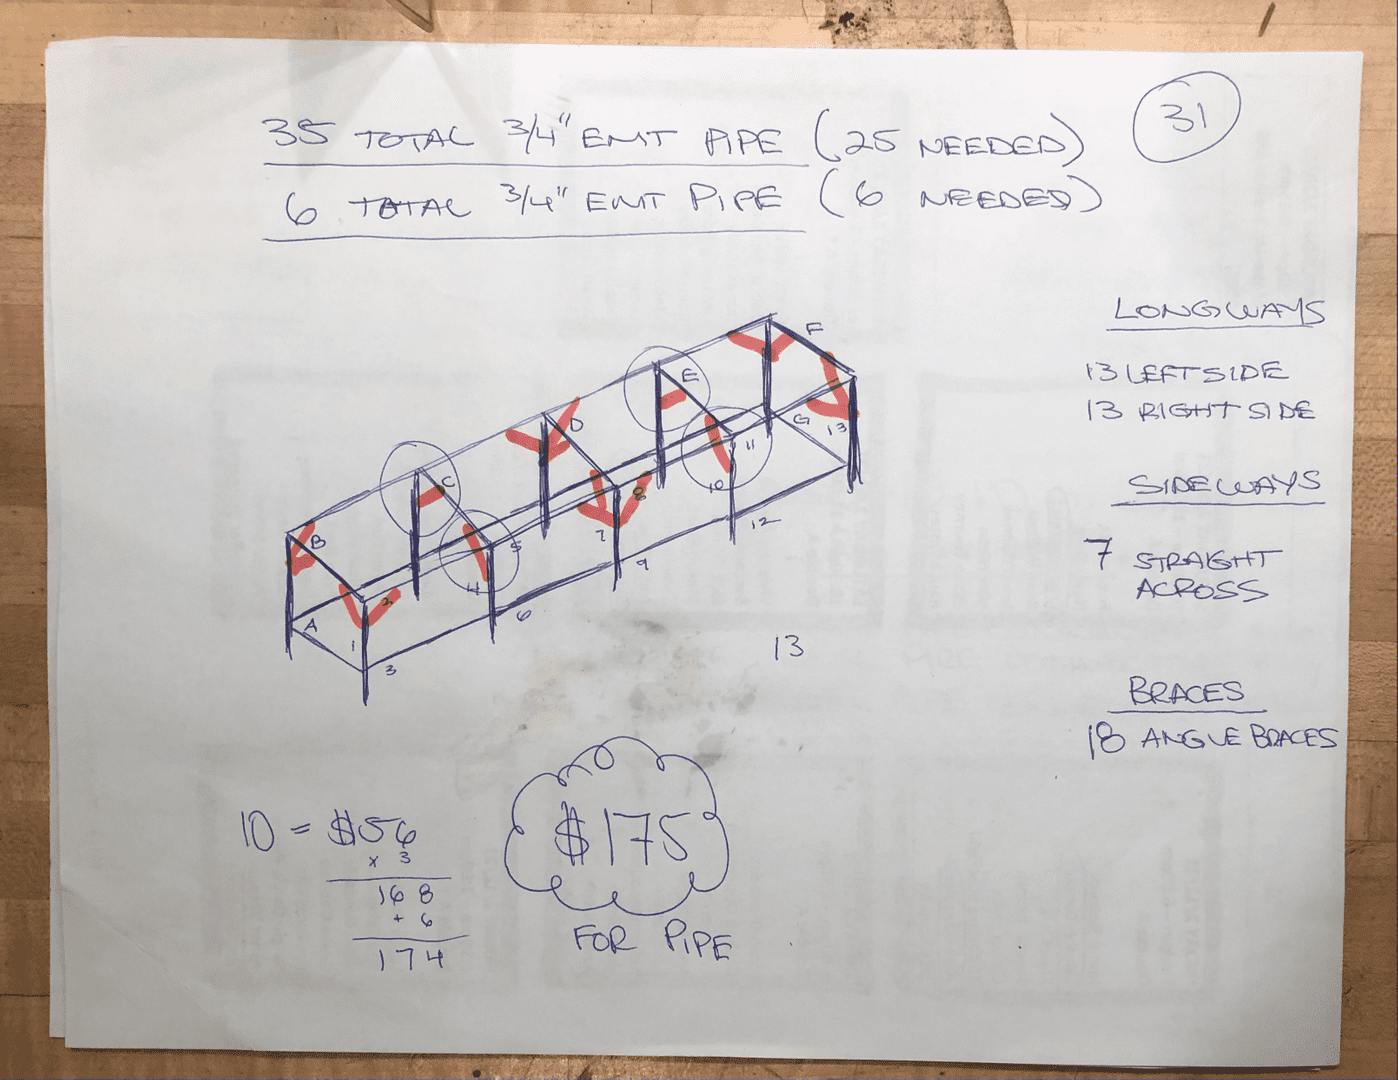 35 TOTAL 3/4" EMT PIPE (25 NEEDED)
31
6 TOTAL 3/4" EMT PIPE (6 NEEDED)
LONGWAYS
13 LEFT SIDE
13 RIGHT SIDE
SIDEWAYS
7 STRAIGHT
ACROSS
BRACES
18 ANGLE BRACES
F
E
D
G
13
11
C
8
10
12
B
5
7
9
4
2
6
A
1
3
13
10 = $56
x 3
168
+ 6
174
$175
FOR PIPE